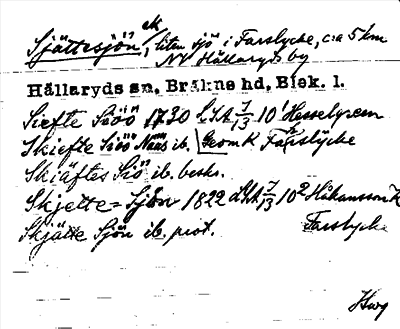 Sjättesjön, ek liten sjö i Farslycke, c:a 5 km
NV Hällaryds by
Hällaryds sn, Bräkne hd, Blek. l.
Siefte Siöö 1730 LSA 7/13 10¹
Skiefte Siöö Näas ib. GeomK Farslÿcke
Skräftes Siö ib. beskr.
Skjette-Sjön 1822 LSA 7/13 10² Håkansson K
Skjätte Sjön ib. prot. Farslycke
Hwg